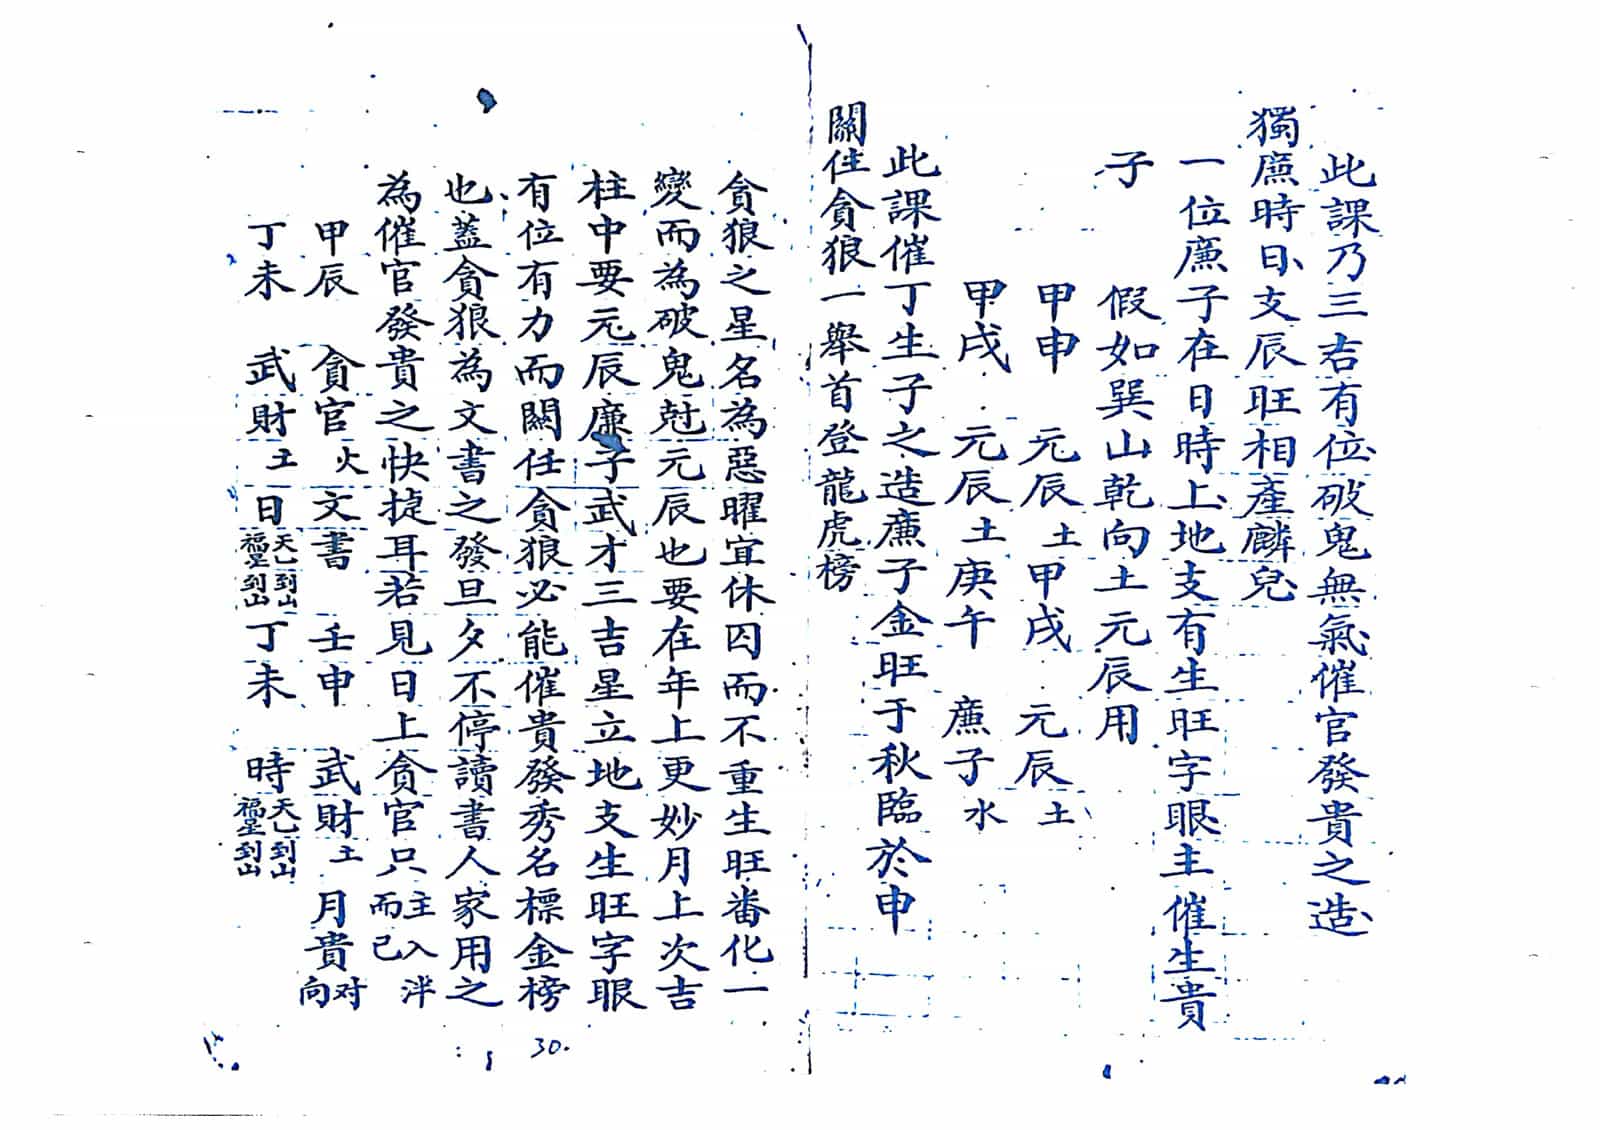 此課乃三右有位破鬼無氣催官發貴之造
獨廉時日支辰旺相產麟兒
一位廉子在日時上地支有生旺字眼主催生貴
子　假如巽山乾向土元辰用
甲申　元辰土　甲戌　元辰土
甲戌　元辰土　庚午　廉子水
此課催丁生子之造廉子金旺于秋臨於申
關住貪狼一舉首登龍虎榜
貪狼之星名為惡曜宜休囚而不重生旺畨化一
變而為破鬼尅元辰也要在年上更妙月上次吉
柱中要元辰廉子武才三吉星立地支生旺字眼
有位有力而關任貪狼必能催貴發秀名標金榜
也蓋貪狼為文書之發旦夕不停讀書人家用之
為催官發貴之快捷耳若見日上貪官只主入泮而已
甲辰　貪官火　文書　壬申　武財土　月貴对向
丁未　武財土　日天乙到山福星到山　丁未　時天乙到山福星到山
30.